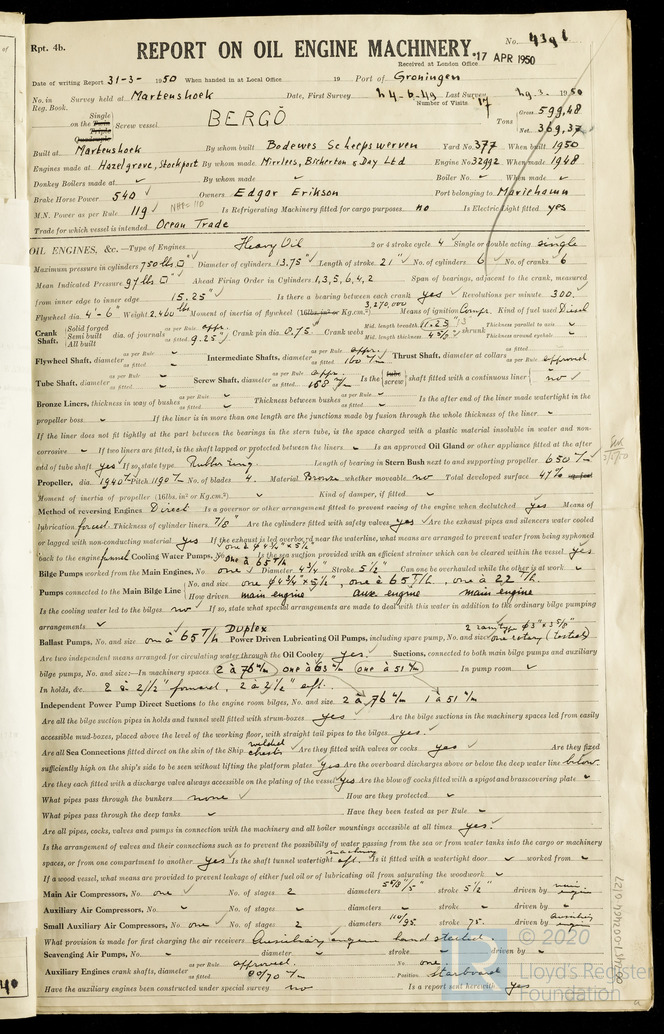 Rpt. 4b.
REPORT ON OIL ENGINE MACHINERY.
No. 4391
Received at London Office 17 APR 1950
Date of writing Report 31-3- 1950 When handed in at Local Office 19 Port of Groningen
No. in Reg. Book. Survey held at Martenshoek Date, First Survey 24-6-49 Last Survey 29.3. 1950
Number of Visits 17
on the Single Twin Triple Quadruple Screw vessel BERGÖ Tons Gross 599,48 Net 369,37
Built at Martenshoek By whom built Bodewes Scheepswerven Yard No. 377 When built 1950
Engines made at Hazelgrove, Stockport By whom made Mirrlees, Bickerton & Day Ltd Engine No. 32992 When made 1948
Donkey Boilers made at By whom made Boiler No. When made
Brake Horse Power 540 Owners Edgar Erikson Port belonging to Mariehamn
M.N. Power as per Rule 119 NHP=110 Is Refrigerating Machinery fitted for cargo purposes. no Is Electric Light fitted yes
Trade for which vessel is intended Ocean Trade
OIL ENGINES, &c.—Type of Engines Heavy Oil 2 or 4 stroke cycle 4 Single or double acting single
Maximum pressure in cylinders 750 lbs □" Diameter of cylinders 13.75" Length of stroke 21" No. of cylinders 6 No. of cranks 6
Mean Indicated Pressure 97 lbs □" Ahead Firing Order in Cylinders 1,3,5,6,4,2 Span of bearings, adjacent to the crank, measured
from inner edge to inner edge 15.25" Is there a bearing between each crank yes Revolutions per minute 300.
Flywheel dia. 4'-6" Weight 2.460 lbs Moment of inertia of flywheel (16lbs.in² or Kg.cm².) 3,270,000 Means of ignition Comp. Kind of fuel used Diesel
Crank Shaft, Solid forged Semi built All built dia. of journals as per Rule appr. as fitted 9.25" Crank pin dia. 8.75" Crank webs Mid. length breadth 11.25" Mid. length thickness 4 5/8" shrunk Thickness parallel to axis Thickness around eyehole
Flywheel Shaft, diameter as per Rule as fitted Intermediate Shafts, diameter as per Rule appr. as fitted 160 m/m Thrust Shaft, diameter at collars as per Rule as fitted approved
Tube Shaft, diameter as per Rule as fitted Screw Shaft, diameter as per Rule appr. as fitted 168 m/m Is the tube screw shaft fitted with a continuous liner no
Bronze Liners, thickness in way of bushes as per Rule as fitted Thickness between bushes as per Rule as fitted Is the after end of the liner made watertight in the
propeller boss If the liner is in more than one length are the junctions made by fusion through the whole thickness of the liner
If the liner does not fit tightly at the part between the bearings in the stern tube, is the space charged with a plastic material insoluble in water and non-
corrosive If two liners are fitted, is the shaft lapped or protected between the liners Is an approved Oil Gland or other appliance fitted at the after
end of tube shaft yes If so, state type Rubber ring. Length of bearing in Stern Bush next to and supporting propeller 650 m/m
Propeller, dia. 1940 Pitch 1190 m/m No. of blades 4. Material Bronze whether moveable no Total developed surface 47%
Moment of inertia of propeller (16lbs.in² or Kg.cm².) Kind of damper, if fitted
Method of reversing Engines Direct Is a governor or other arrangement fitted to prevent racing of the engine when declutched yes Means of
lubrication forced. Thickness of cylinder liners 7/8" Are the cylinders fitted with safety valves yes Are the exhaust pipes and silencers water cooled
or lagged with non-conducting material yes If the exhaust is led overboard near the waterline, what means are arranged to prevent water from being syphoned
back to the engine funnel Cooling Water Pumps, No. one à ϕ4¾"×5½" one à 65 T/h Is the sea suction provided with an efficient strainer which can be cleared within the vessel yes
Bilge Pumps worked from the Main Engines, No. one Diameter 4¾" Stroke 5½" Can one be overhauled while the other is at work
Pumps connected to the Main Bilge Line No. and size one ϕ4¾"×5½", one à 65 T/h, one à 22 T/h.
How driven main engine aux. engine main engine
Is the cooling water led to the bilges no If so, state what special arrangements are made to deal with this water in addition to the ordinary bilge pumping
arrangements
Ballast Pumps, No. and size one à 65 T/h Duplex Power Driven Lubricating Oil Pumps, including spare pump, No. and size one rotary (tested)
Are two independent means arranged for circulating water through the Oil Cooler yes. Suctions, connected to both main bilge pumps and auxiliary
bilge pumps, No. and size:—In machinery spaces 2 à 76 m/m one à 63 m/m one à 51 m/m In pump room
In holds, &c. 2 à 2½" forward, 2 à 2½" aft.
Independent Power Pump Direct Suctions to the engine room bilges, No. and size. 2 à 76 m/m 1 à 51 m/m
Are all the bilge suction pipes in holds and tunnel well fitted with strum-boxes yes Are the bilge suctions in the machinery spaces led from easily
accessible mud-boxes, placed above the level of the working floor, with straight tail pipes to the bilges yes.
Are all Sea Connections fitted direct on the skin of the Ship welded chests Are they fitted with valves or cocks yes Are they fixed
sufficiently high on the ship's side to be seen without lifting the platform plates yes Are the overboard discharges above or below the deep water line below
Are they each fitted with a discharge valve always accessible on the plating of the vessel yes Are the blow off cocks fitted with a spigot and brass covering plate
What pipes pass through the bunkers none How are they protected
What pipes pass through the deep tanks Have they been tested as per Rule
Are all pipes, cocks, valves and pumps in connection with the machinery and all boiler mountings accessible at all times yes.
Is the arrangement of valves and their connections such as to prevent the possibility of water passing from the sea or from water tanks into the cargo or machinery
spaces, or from one compartment to another yes Is the shaft tunnel watertight machinery aft. Is it fitted with a watertight door worked from
If a wood vessel, what means are provided to prevent leakage of either fuel oil or of lubricating oil from saturating the woodwork
Main Air Compressors, No. one No. of stages 2 diameters stroke 5½" driven by main engine
Auxiliary Air Compressors, No. No. of stages diameters stroke driven by
Small Auxiliary Air Compressors, No. one No. of stages 2 diameters 110/95 stroke 75. driven by auxiliary engine
What provision is made for first charging the air receivers Auxiliary engine hand started.
Scavenging Air Pumps, No. diameter stroke driven by
Auxiliary Engines crank shafts, diameter as per Rule approved. as fitted 80/70 m/m No. one. Position Starboard
Have the auxiliary engines been constructed under special survey no Is a report sent herewith yes
© 2020
Lloyd's Register
Foundation